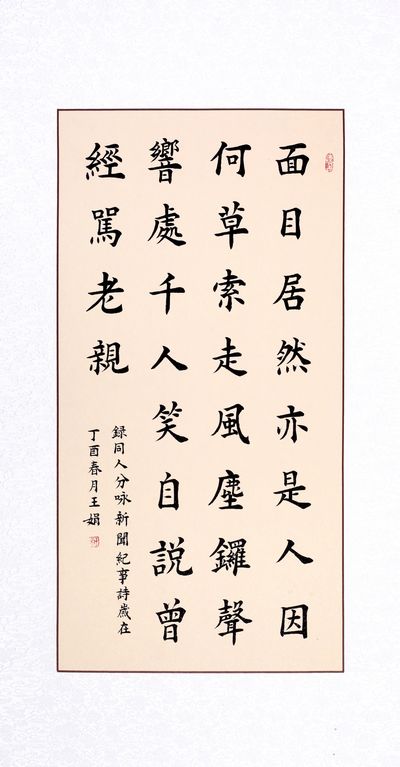 面目居然亦是人因
何草索走風塵鑼聲
響處千人笑自説曾
經罵老親
録同人分咏新聞紀事詩歲在
丁酉春月王娟